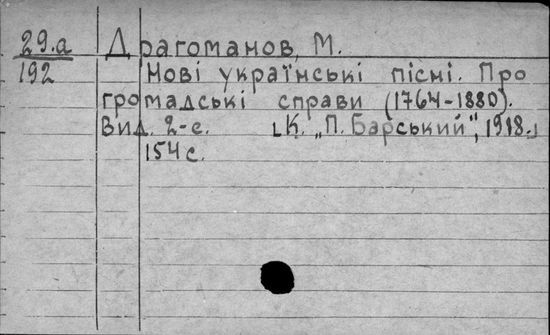 29.а Драгоманов, М.
192 Нові українські пісні. Про
громадські справи (1764-1880).
Вид. 2-е. [К. „П. Барський", 1918.]
154 с.